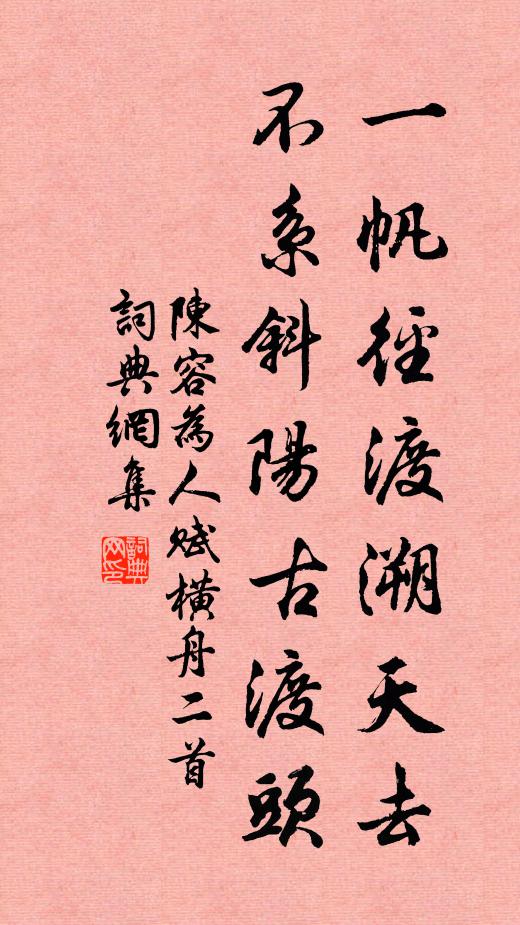 一帆徑渡溯天去
不系斜陽古渡頭
陳容為人賦橫舟二首
詞典網集
詞典
网印